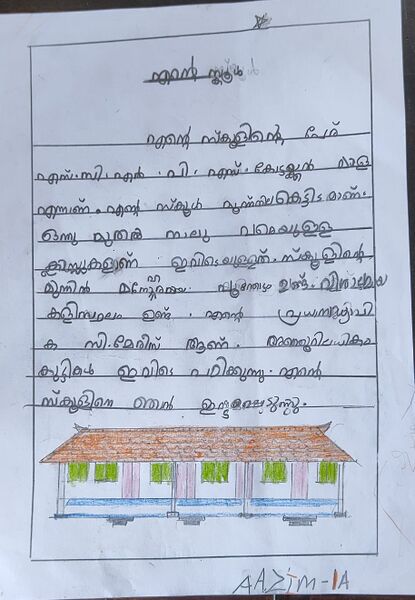 എന്റെ സ്കൂൾ
എന്റെ സ്കൂളിന്റെ പേര്
എസ്.സി.എൻ.വി.എസ്.
എന്നാണ്. എന്റെ സ്കൂൾ കെട്ടിടമാണ്.
ഒന്നു മുതൽ നാലു വരെയുള്ള
ക്ലാസ്സുകളാണ് ഇവിടെയുള്ളത്. സ്കൂളിന്റെ
മുന്നിൽ ഉണ്ട്. വിശാലമായ
കളിസ്ഥലം ഉണ്ട്. എന്റെ പ്രധാനാധ്യാപി
ക സി.മേരിസ് ആണ്.
കുട്ടികൾ ഇവിടെ പഠിക്കുന്നു. എന്റെ
സ്കൂളിനെ ഞാൻ ഇഷ്ടപ്പെടുന്നു.
AAZIM-1A